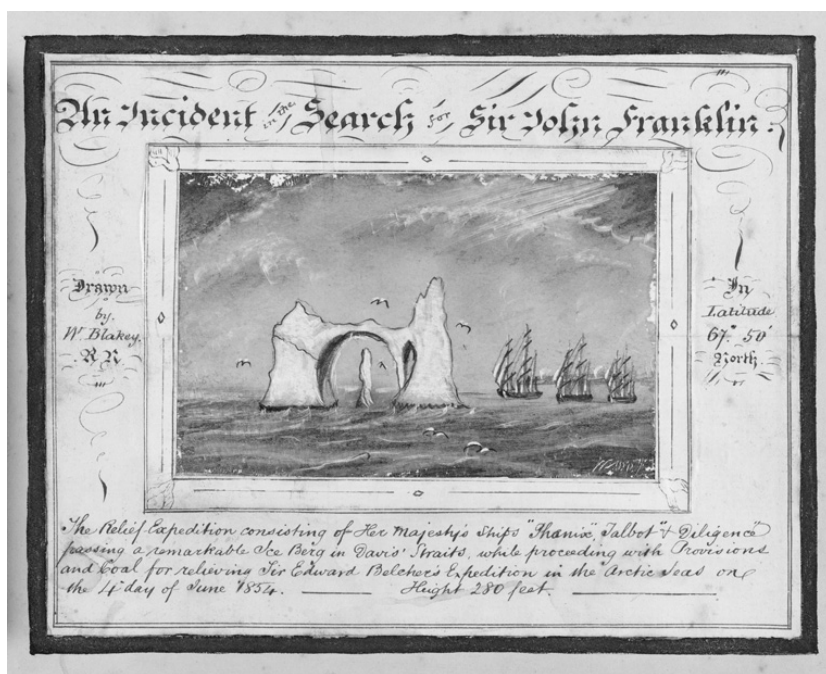 An Incident in the Search for Sir John Franklin.
Drawn
by.
W. Blakey.
R N
In
Latitude
67° 50'
North.
The Relief Expedition consisting of Her Majesty's Ships "Phœnix", Talbot" & Diligence"
passing a remarkable Ice Berg in Davis' Straits, while proceeding with Provisions
and Coal for relieving Sir Edward Belcher's Expedition in the Arctic Seas on
the 4 day of June 1854. Height 280 feet